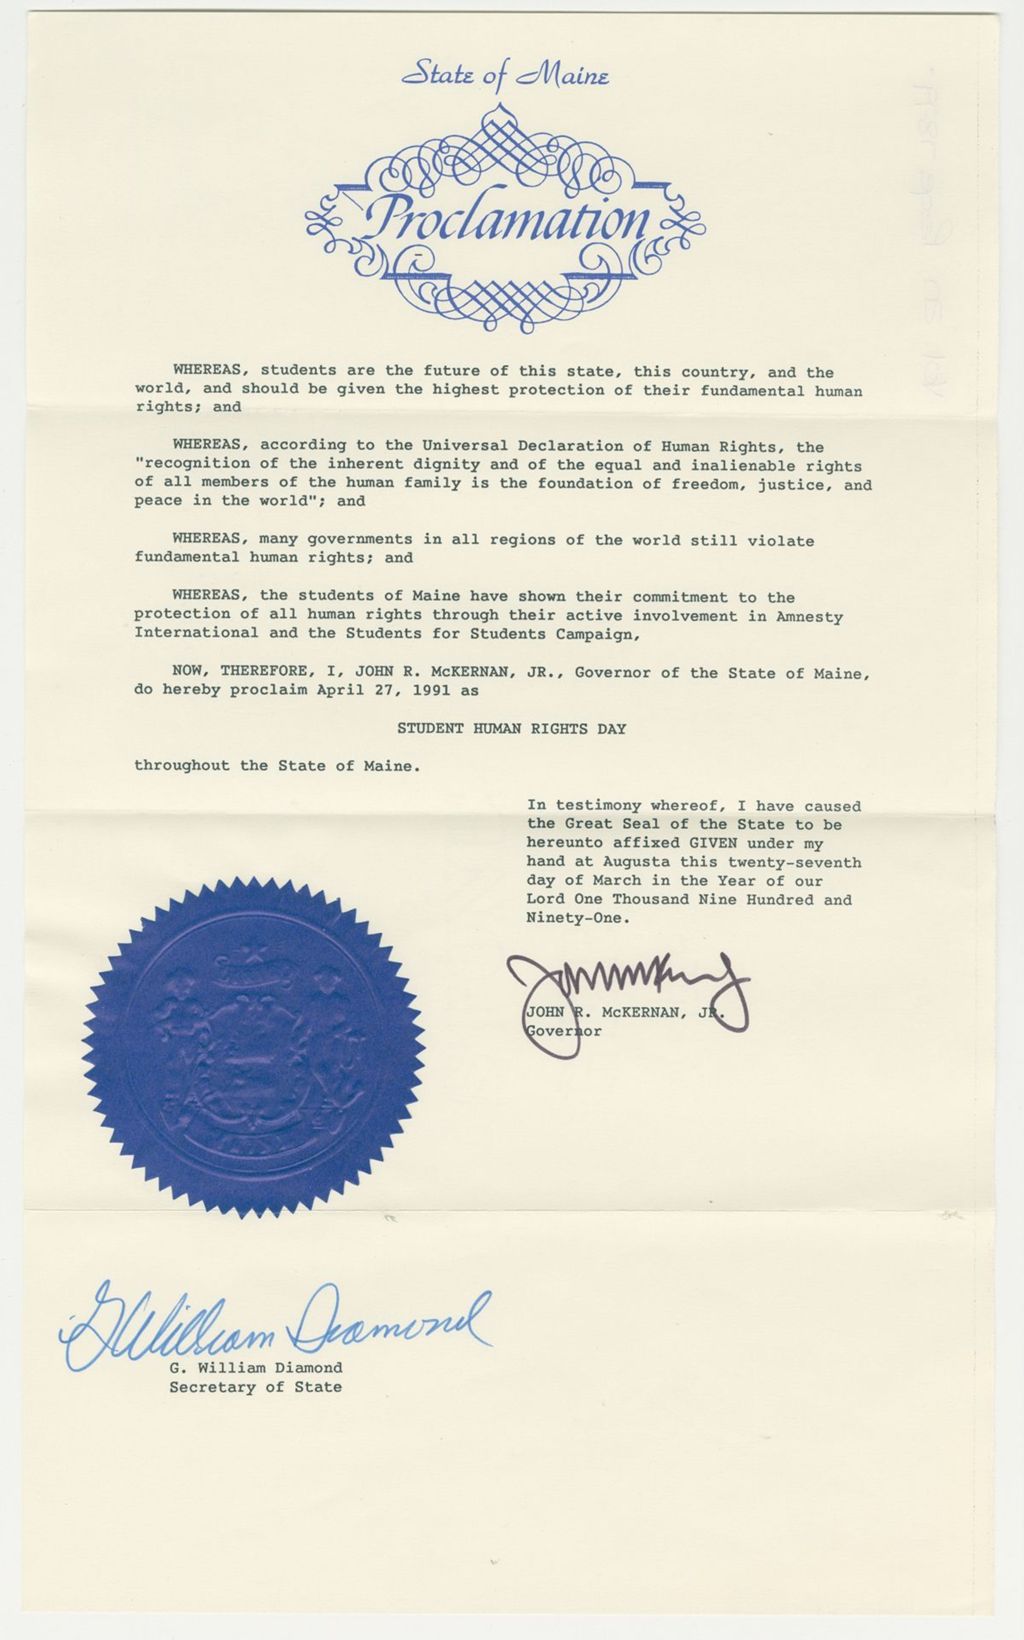 State of Maine
Proclamation
WHEREAS, students are the future of this state, this country, and the
world, and should be given the highest protection of their fundamental human
rights; and
WHEREAS, according to the Universal Declaration of Human Rights, the
"recognition of the inherent dignity and of the equal and inalienable rights
of all members of the human family is the foundation of freedom, justice, and
peace in the world"; and
WHEREAS, many governments in all regions of the world still violate
fundamental human rights; and
WHEREAS, the students of Maine have shown their commitment to the
protection of all human rights through their active involvement in Amnesty
International and the Students for Students Campaign,
NOW, THEREFORE, I, JOHN R. McKERNAN, JR., Governor of the State of Maine,
do hereby proclaim April 27, 1991 as
STUDENT HUMAN RIGHTS DAY
throughout the State of Maine.
In testimony whereof, I have caused
the Great Seal of the State to be
hereunto affixed GIVEN under my
hand at Augusta this twenty-seventh
day of March in the Year of our
Lord One Thousand Nine Hundred and
Ninety-One.
JOHN R. McKERNAN, JR.
Governor
G William Diamond
G. William Diamond
Secretary of State